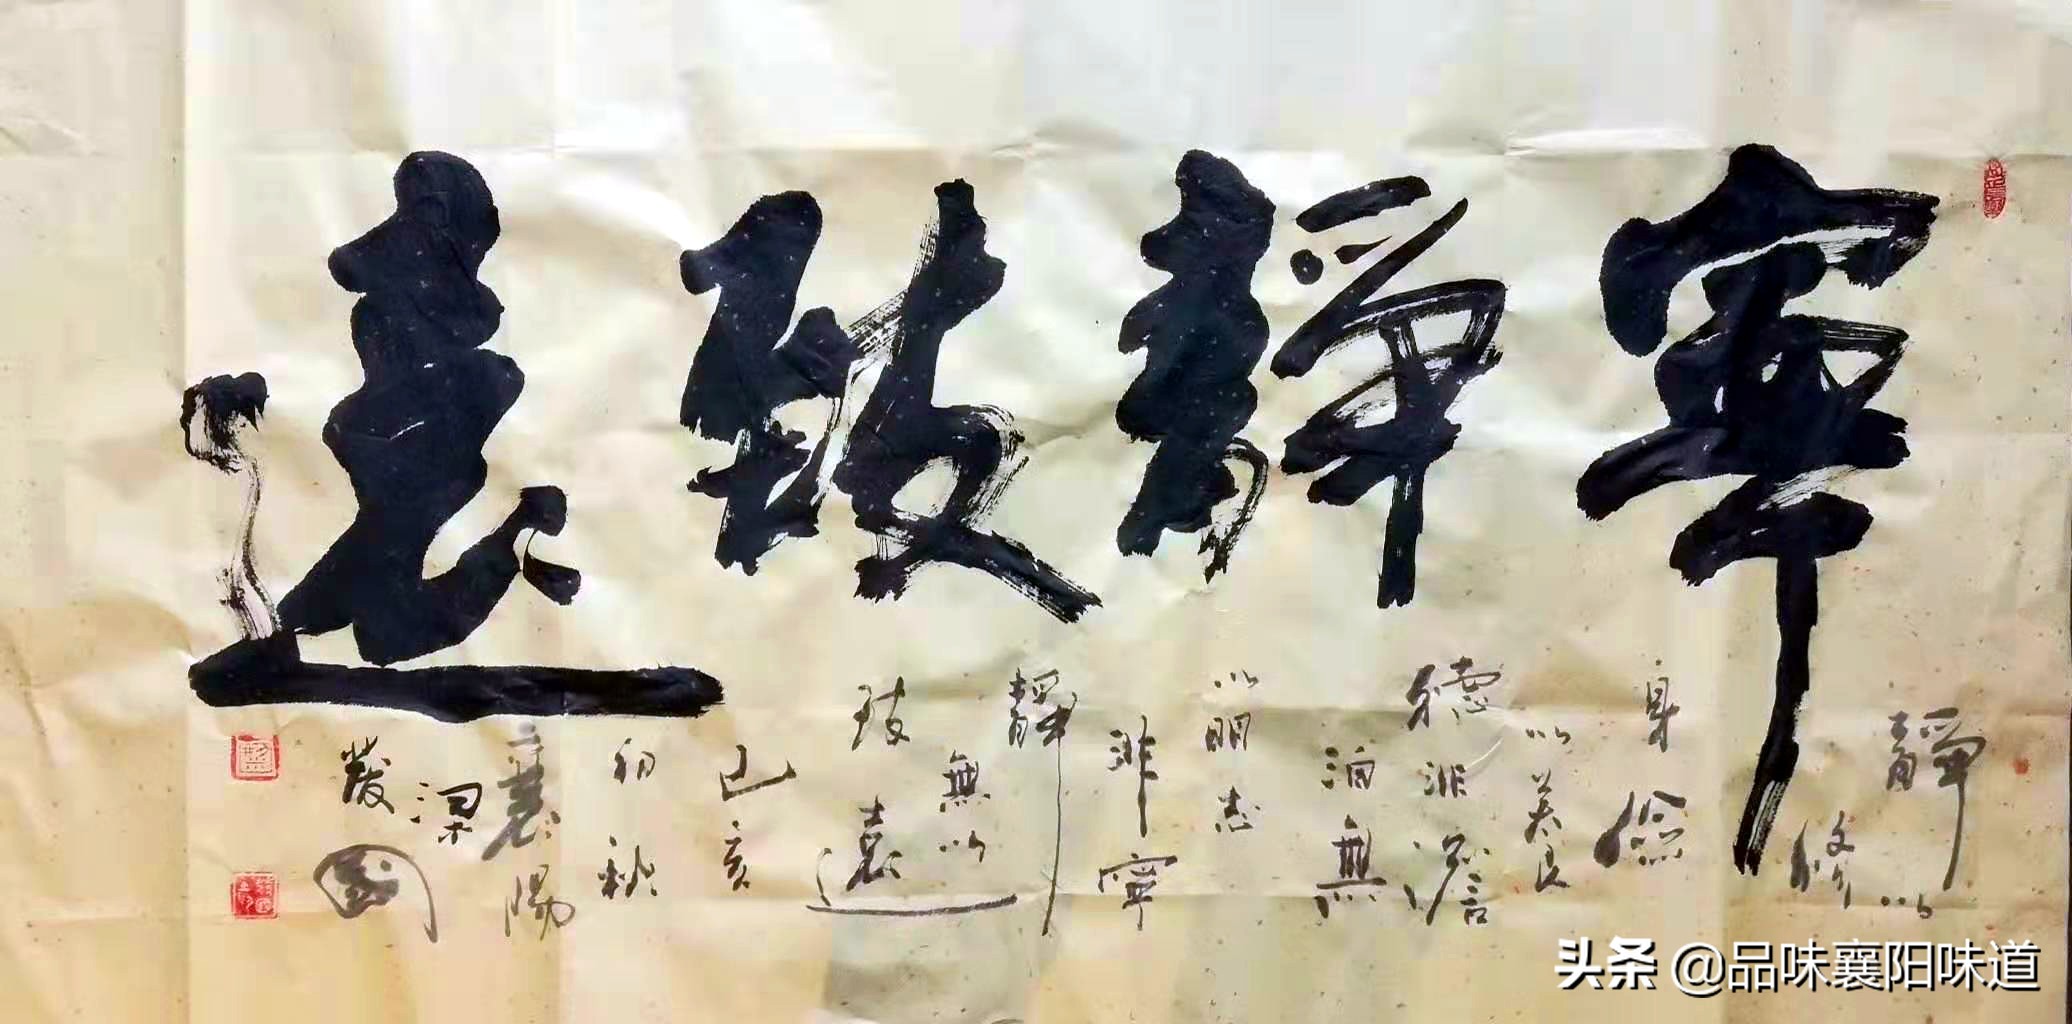 寧靜致遠
靜以
修
身儉
以養
德非澹
泊無
以明志
非寧
靜
無以
致遠
己亥
初秋
襄陽
梁
發國
头条 @品味襄阳味道